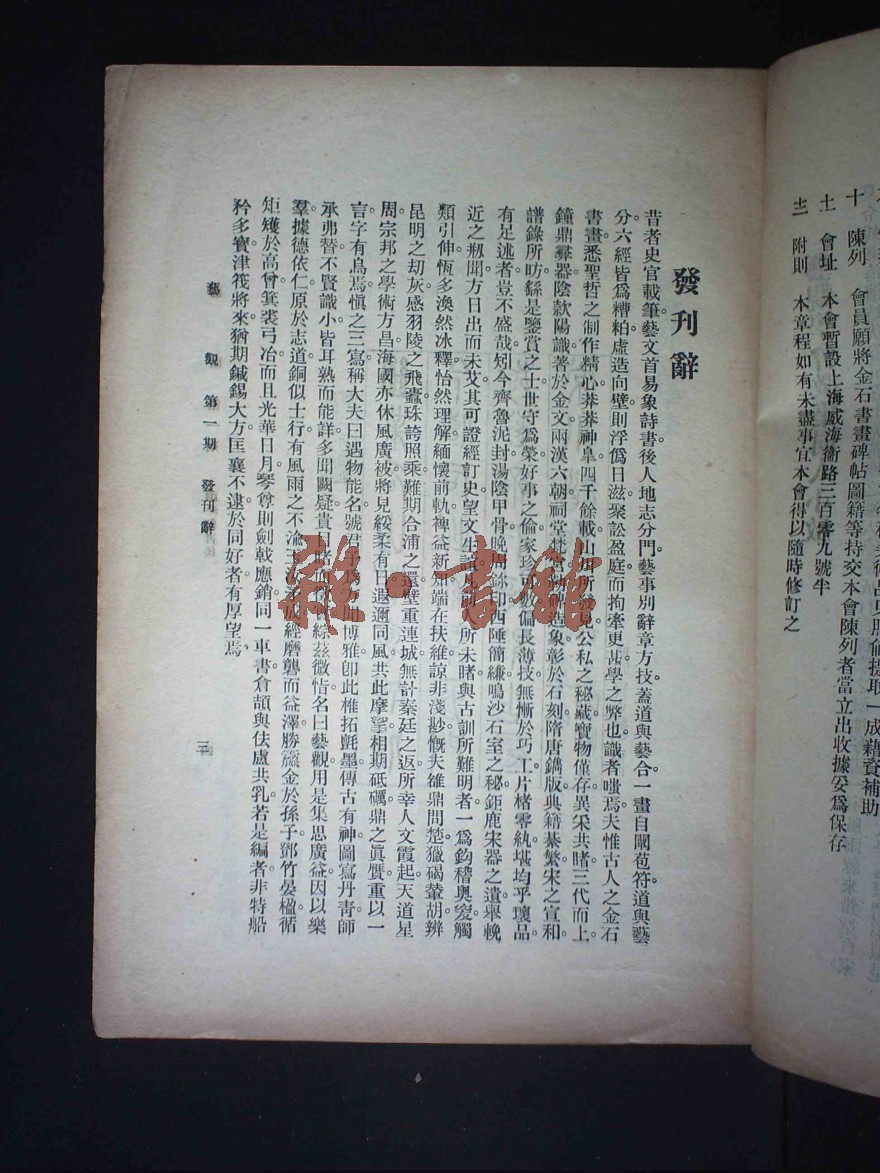 十　陳列　會員願將金石書畫碑帖圖籍等持交本會陳列者當立出收據妥爲保存
十一　會址　本會暫設上海威海衞路三百零九號半
十二　附則　本章程如有未盡事宜本會得以隨時修訂之
發刊辭
昔者史官載筆藝文首易象詩書後人地志分門藝事別辭章方技蓋道與藝合一畫自闢苞符道與藝
分六經皆爲糟粕虛造向壁則浮僞日滋聚訟盈庭而拘牽更甚學之弊也識者嗤焉夫惟古人之金石
書畫悉聖哲之制作精心莽莽神皐四千餘載山川所發見公私之秘藏寶物僅存異采共睹三代而上
鐘鼎彝器陰款陽識著於金文兩漢六朝祠堂梵造象彰於石刻隋唐鐫版典籍綦繁宋之宣和
譜錄所昉繇是鑒賞之士世守爲榮好事之倫家珍可數偏長薄技無慚於巧工片楮零紈堪均乎瓌品
有足述者豈不盛哉矧今齊魯泥封湯陰甲骨晚周鉨印西陲簡縑鳴沙石室之秘鉅鹿宋器之遺舉輓
近之剏聞方日出而未艾其可證經訂史望文生所未睹與古訓所難明者一爲鈎稽奥窔觸
類引伸恆多渙然冰釋怡然理解緬懷前軌裨益新知端在扶維諒非淺尠慨夫雄鼎問楚獵碣輦胡辨
昆明之刧灰感羽陵之飛蠹珠誇照乘難期合浦之還璧重連城無計秦廷之返所幸人文霞起天道星
周宗邦之學術方昌海國亦休風廣被將見綏柔有日遐邇同風共此摩挲相期砥礪鼎之眞贋重以一
言字有鳥焉愼之三寫稱大夫曰遇物能名號君子博雅卽此椎拓氈墨傳古有神圖寫丹靑師
承弗替不賢識小皆耳熟而能詳多聞闕疑貴綜茲微恉名曰藝觀用是集思廣益因以樂
羣據德依仁原於志道銅似士行有風雨之不渝經磨礱而益澤勝籯金於孫子鄧竹晏楹循
矩矱於高曾箕裘弓冶而且光華日月琴尊則劍戟應銷同一車書倉頡與佉盧共乳若是編者非特船
矜多寶津筏將來猶期鍼錫大方匡襄不逮於同好者有厚望焉
藝觀　第一期　發刊辭
三
雜·書館